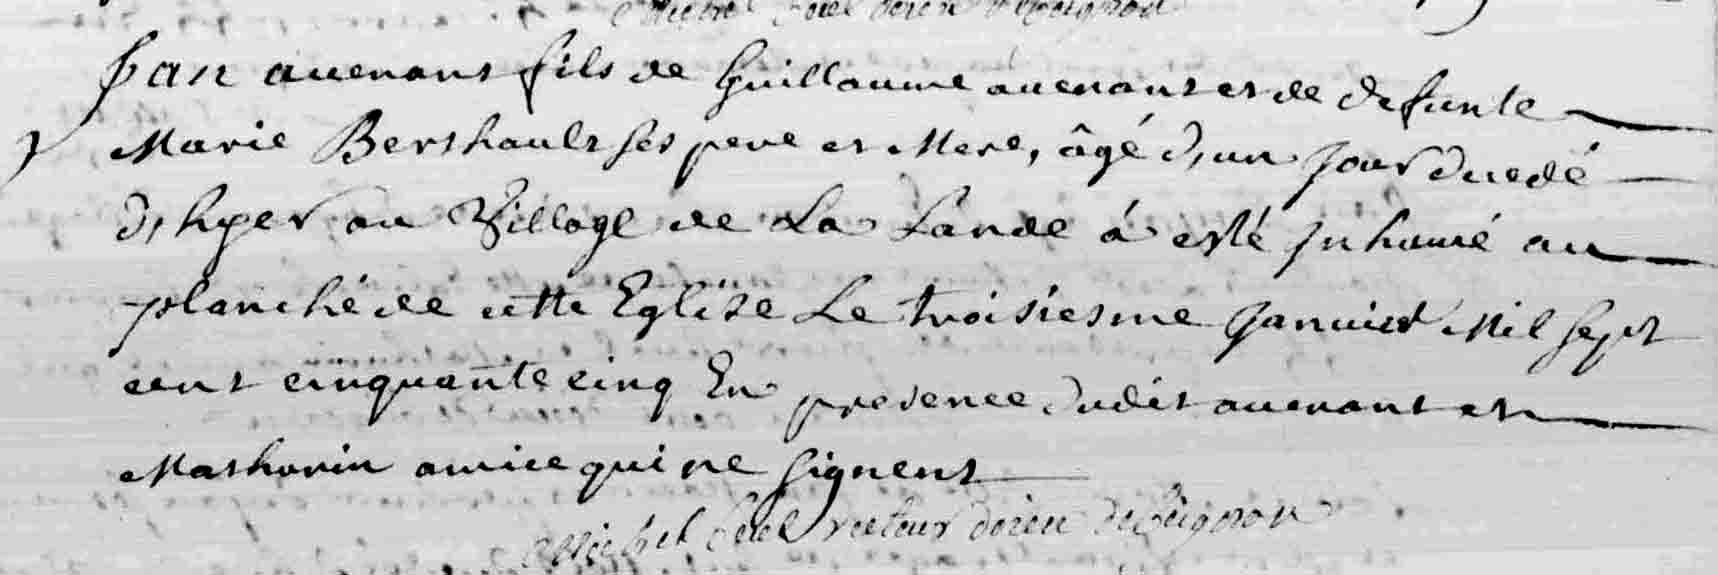 Jan auenant fils de Guillaume auenant et de defunte
Marie Berthault ses pere et Mere, âgé d,un jour decedé
d,hyer au Village de La Lande á esté Inhumé au
planché de cette Eglise Le troisiesme Januier Mil sept
cent cinquante cinq En presence dudit auenant et
Mathurin amice qui ne signent
Michel recteur doien de